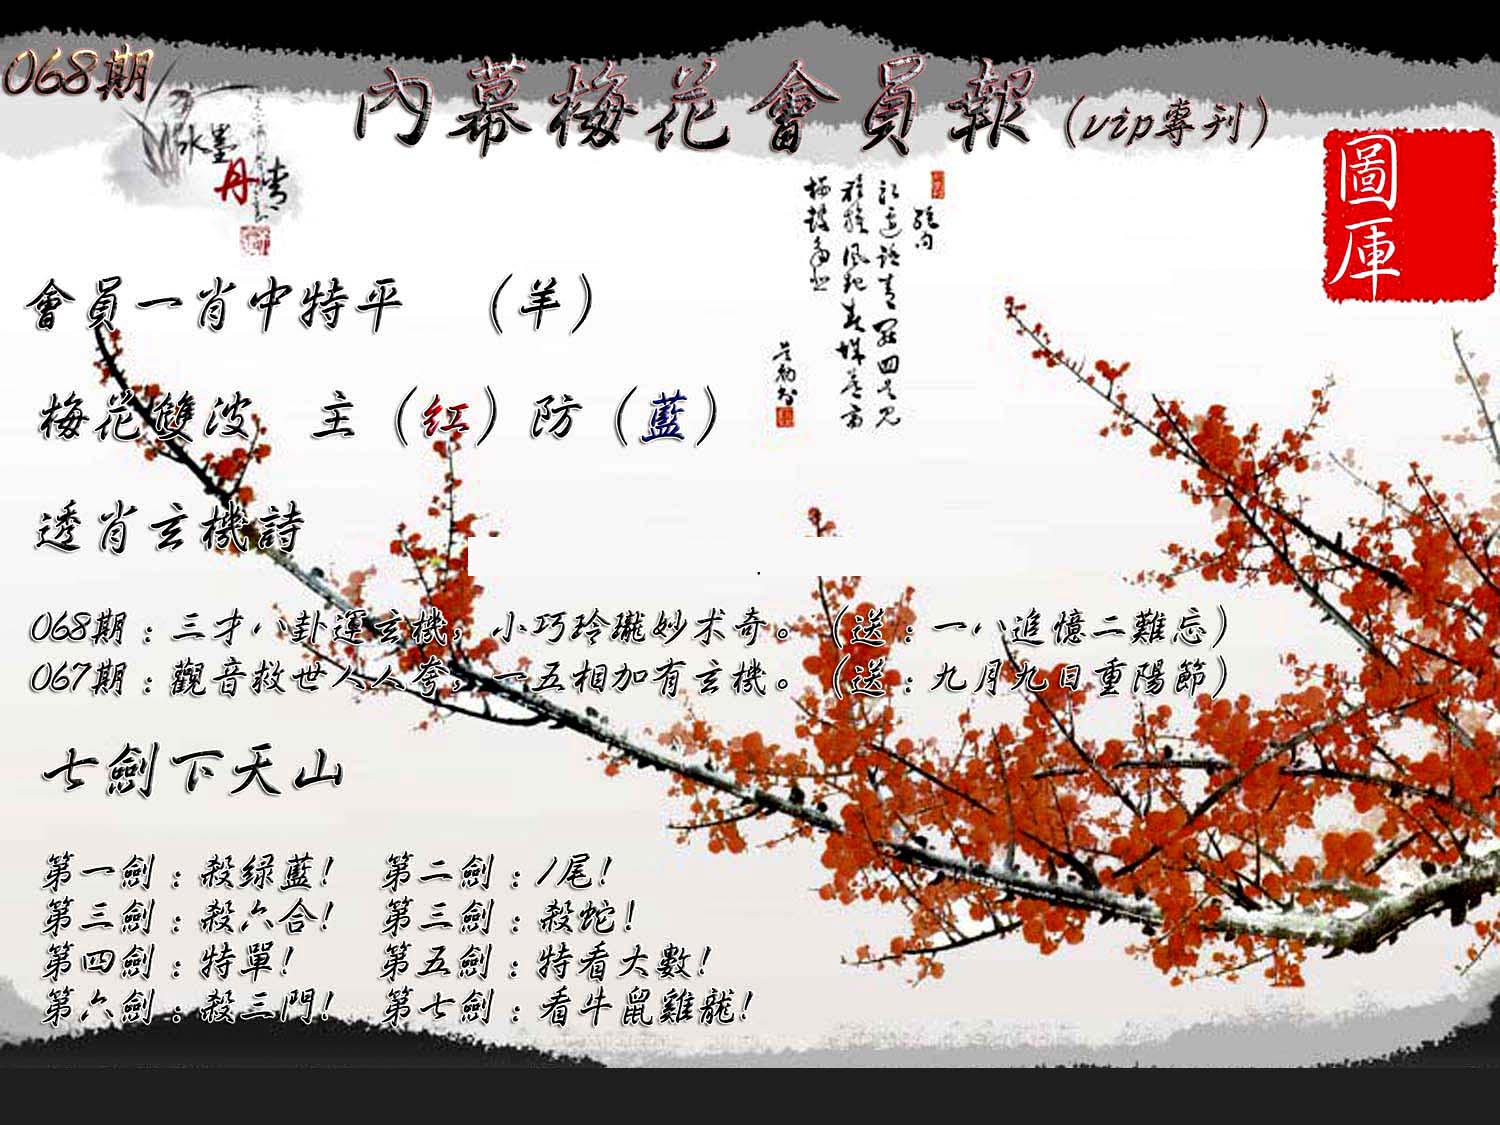 068期
內幕梅花會員報(vip專刊)
水墨
丹青
圖庫
會員一肖中特平 (羊)
梅花雙波 主(紅)防(藍)
透肖玄機詩
068期:三才八卦運玄機,小巧玲瓏妙术奇。(送:一八追憶二難忘)
067期:觀音救世人人夸,一五相加有玄機。(送:九月九日重陽節)
七劍下天山
第一劍:殺绿藍! 第二劍:1尾!
第三劍:殺六合! 第三劍:殺蛇!
第四劍:特單! 第五劍:特看大數!
第六劍:殺三門! 第七劍:看牛鼠雞龍!